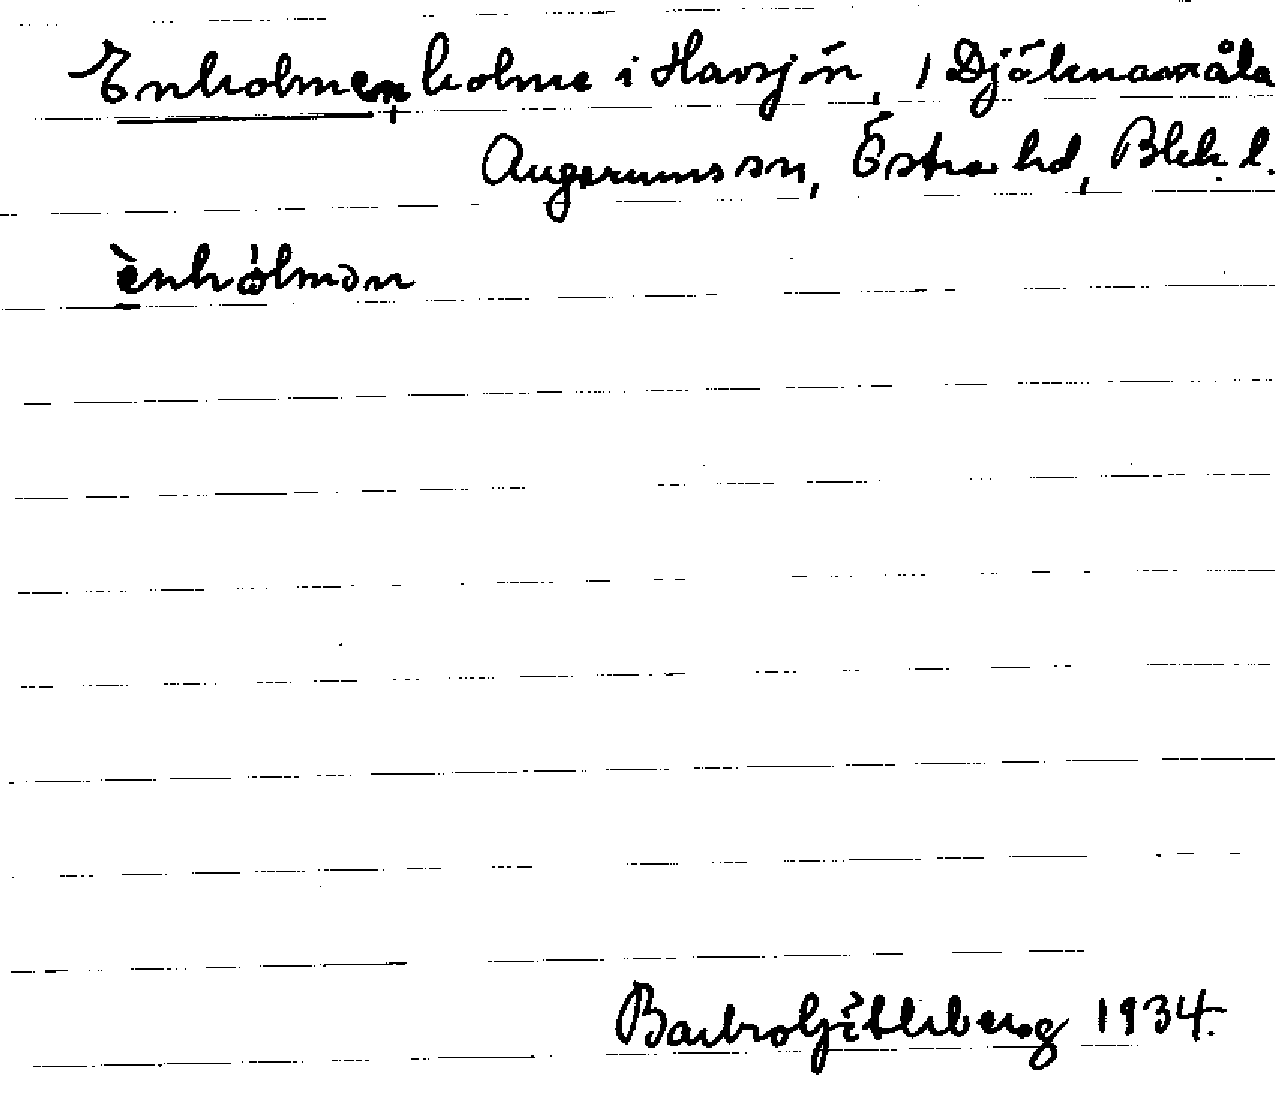 Enholmen, holme i Havsjön, i Djöknamåla
Augerums sn, Östra hd, Blek. l.
ènhólmən
Barbro Götlberg 1934.